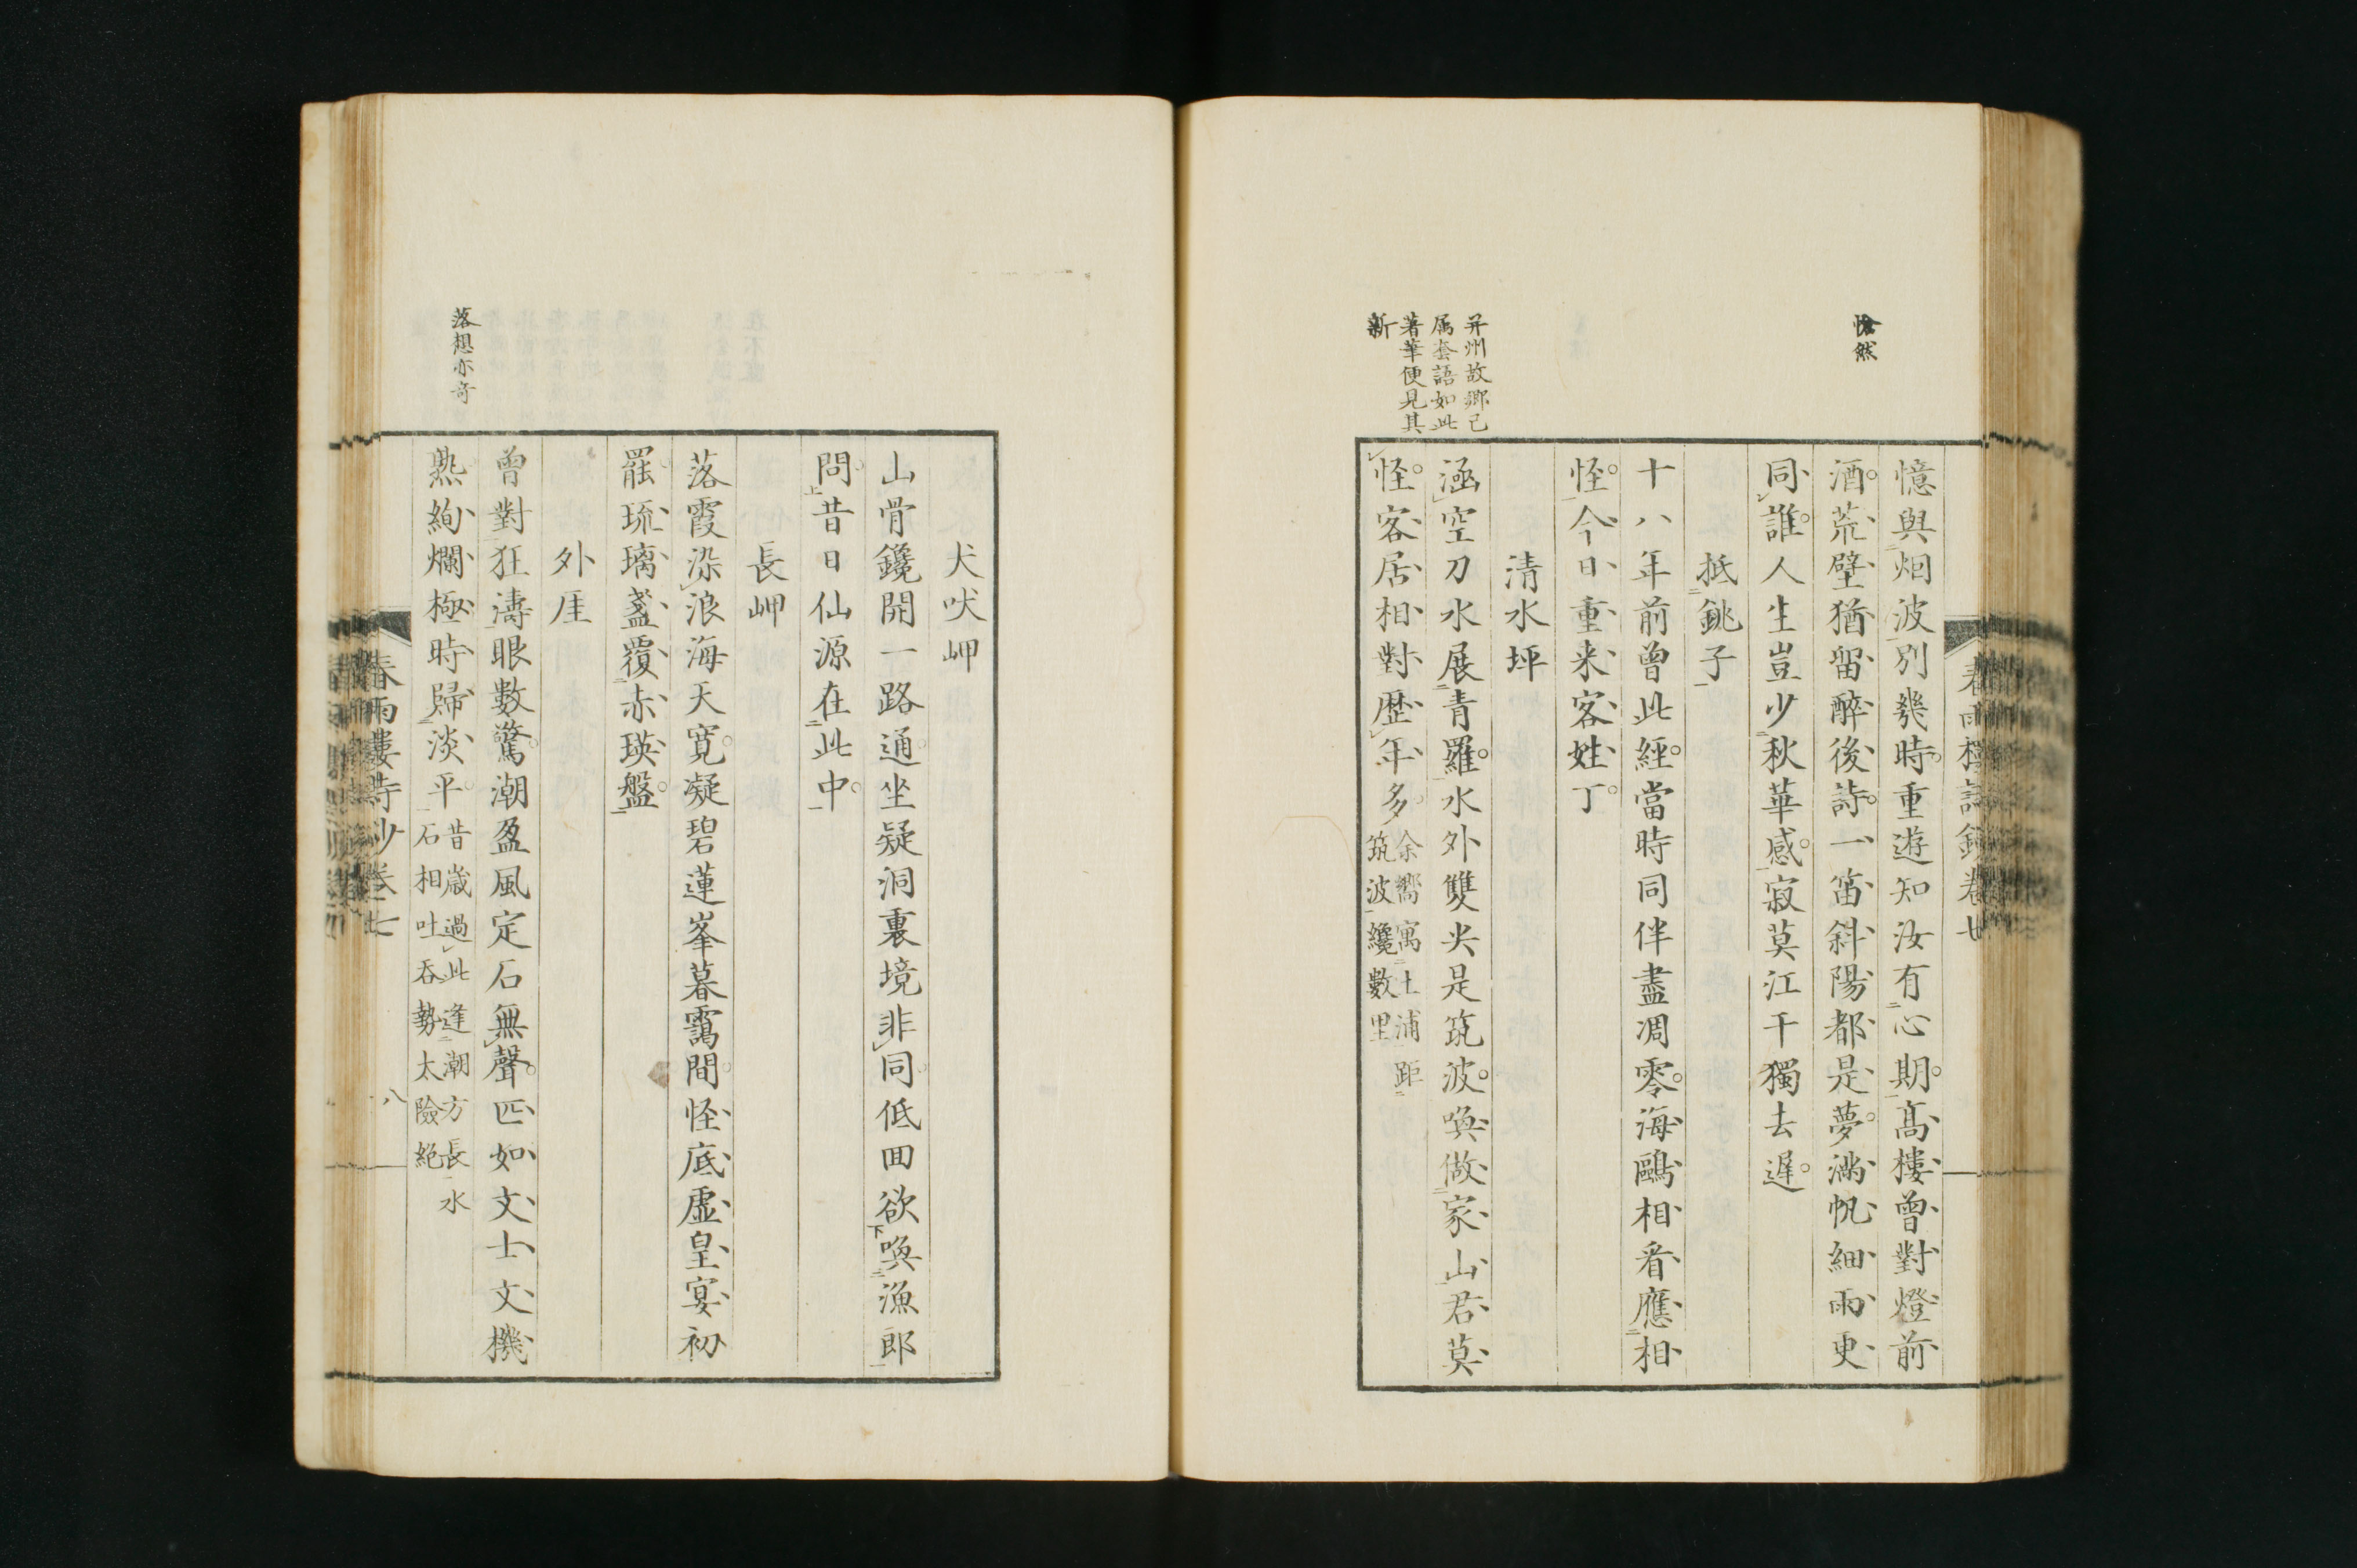 愴然
憶與烟波別幾時重遊知汝有心期髙樓曾對燈前
酒荒壁猶留醉後詩一笛斜陽都是夢滿帆細雨更
同誰人生豈少秋華感寂莫江干獨去遲
抵銚子
十八年前曾此經當時同伴盡凋零海鷗相看應相
怪今日重来客姓丁
清水坪
并州故鄉已
属套語如此
著華便見其
新
涵空刀水展青羅水外雙尖是筑波喚做家山君莫
怪客居相對歴年多
余嚮寓土浦距
筑波纔數里
犬吠岬
山骨鑱開一路通坐疑洞裏境非同低回欲喚漁郎
問昔日仙源在此中
長岬
落霞染浪海天寛凝碧蓮峯暮靄間怪底虛皇宴初
罷琉璃盞覆赤瑛盤
外厓
落想亦奇
曾對狂濤眼數驚潮盈風定石無聲匹如文士文機
熟絢爛極時歸淡平
昔歲過此逢潮方長水
石相吐吞勢太險絕
春雨樓詩鈔卷七
八